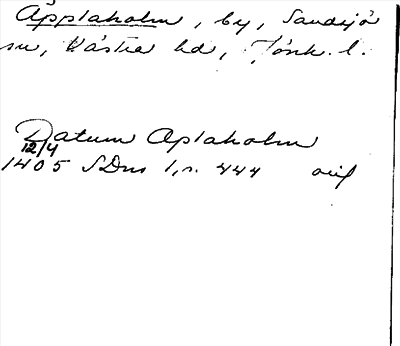 Äpplaholm, by, Sandsjö
sn, Västra hd, Jönk. l.
Datum Aplaholm
12/4
1405 SDns 1, s. 444 orig